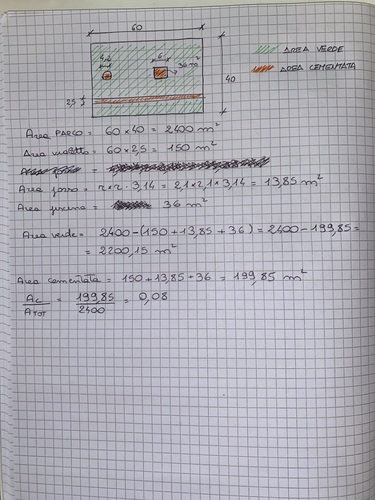 60
4,2
6
36 m²
40
2,5
AREA VERDE
AREA CEMENTATA
Area PARCO = 60 × 40 = 2400 m²
Area vialetto = 60 × 2,5 = 150 m²
=
Area fosso = r × r · 3,14 = 2,1 × 2,1 × 3,14 = 13,85 m²
Area = 36 m²
Area verde = 2400 - (150 + 13,85 + 36) = 2400 - 199,85 =
= 2200,15 m²
Area cementata = 150 + 13,85 + 36 = 199,85 m²
Ac / ATOT = 199,85 / 2400 = 0,08